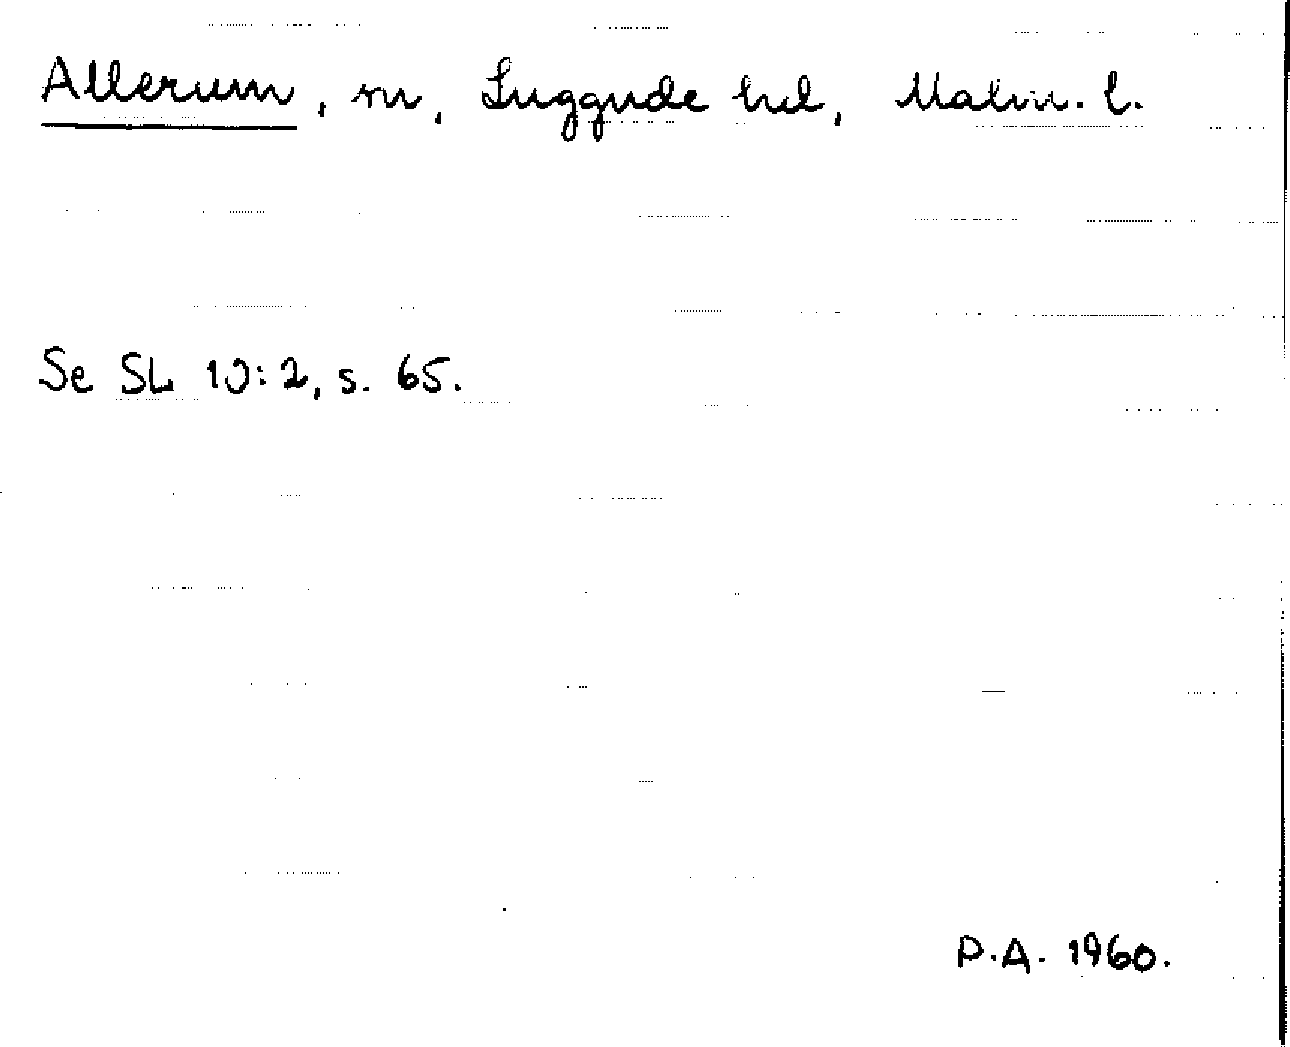 Allerum, sn, Luggude hd, Malm. l.
Se SL 10:2, s. 65.
P.A. 1960.